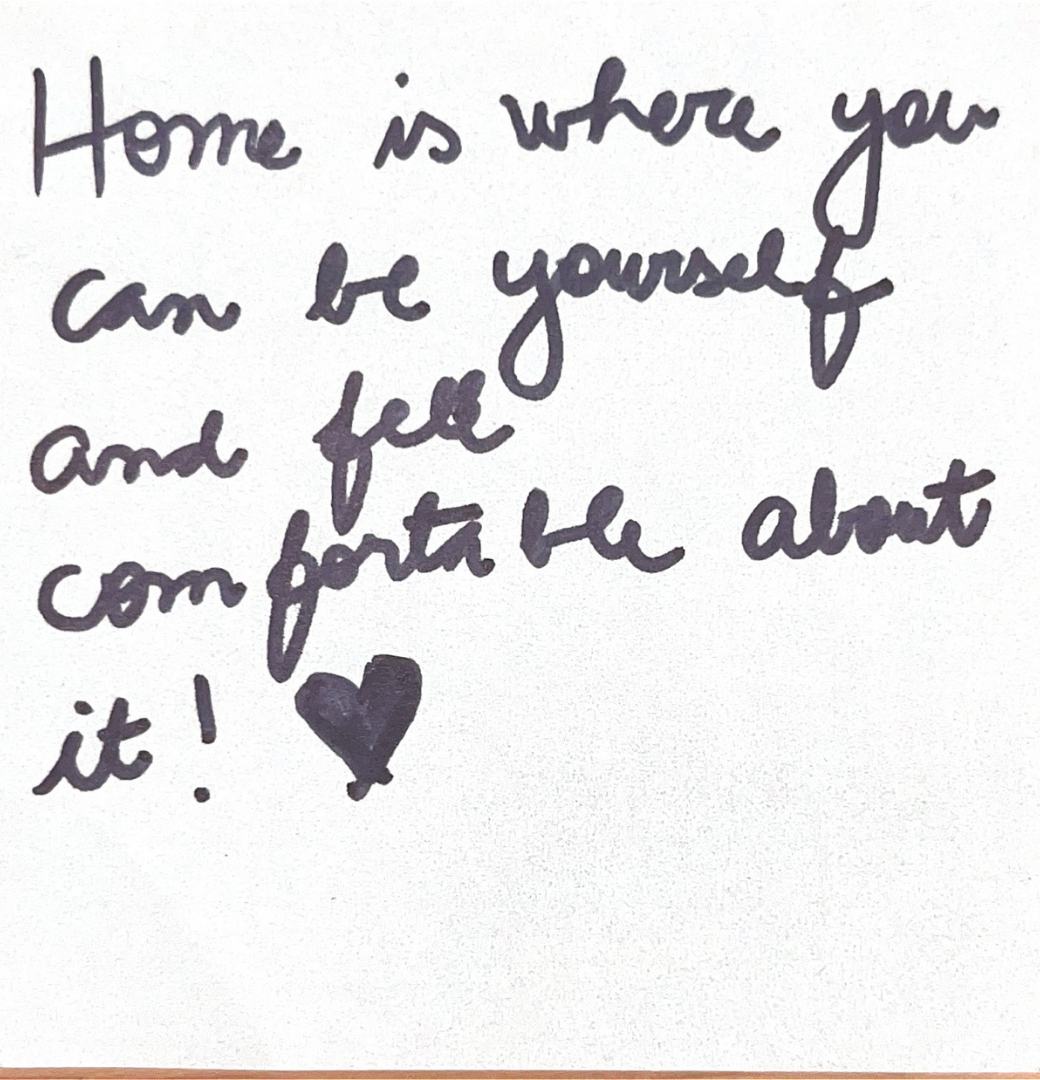 Home is where you
can be yourself
and fell
comfortable about
it! ♥